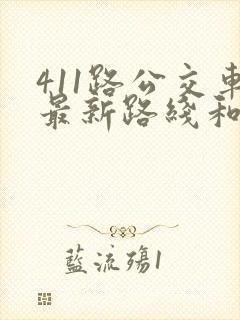 411路公交車
最新路綫和
藍流殤1